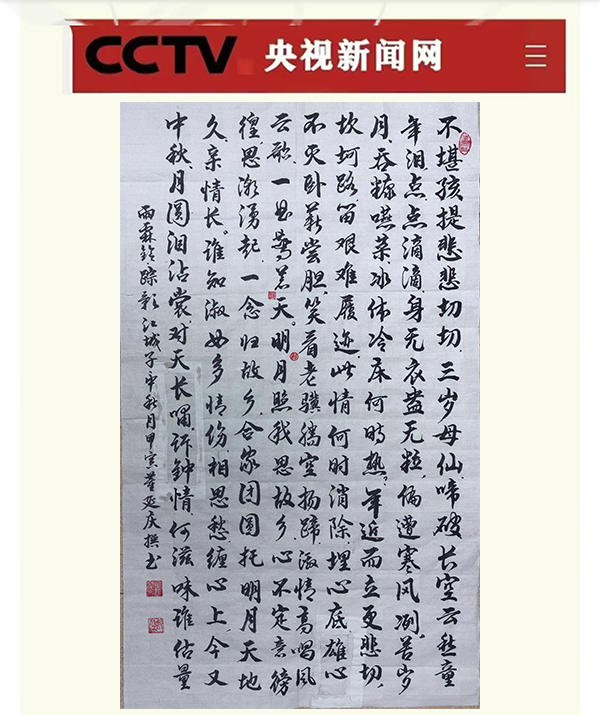 CCTV 央视新闻网
不堪孩提悲悲切切,三岁母仙,啼破长空云愁童
年泪点点滴滴,身无衣盎无粒,偏遭寒风冽。苦岁
月,吞糠嚥菜,冰体冷床何时热?年近而立更悲切,
坎坷路笛艰难履迹,此情何时消除,埋心底雄心
不灭卧薪尝胆,笑看老骥腾空扬蹄,激情高唱风
云歌一思惊天。明月照我思故乡,心不定意徬
徨思潮涌起,一念归故乡,合家团圆托明月天地
久,亲情长。谁知淑女多情伤,相思愁,缠心上,今又
中秋,月圆泪沾裳,对天长啸,诉钟情何滋味谁估量
雨霖铃踪影江城子中秋月甲寅董延庆撰书